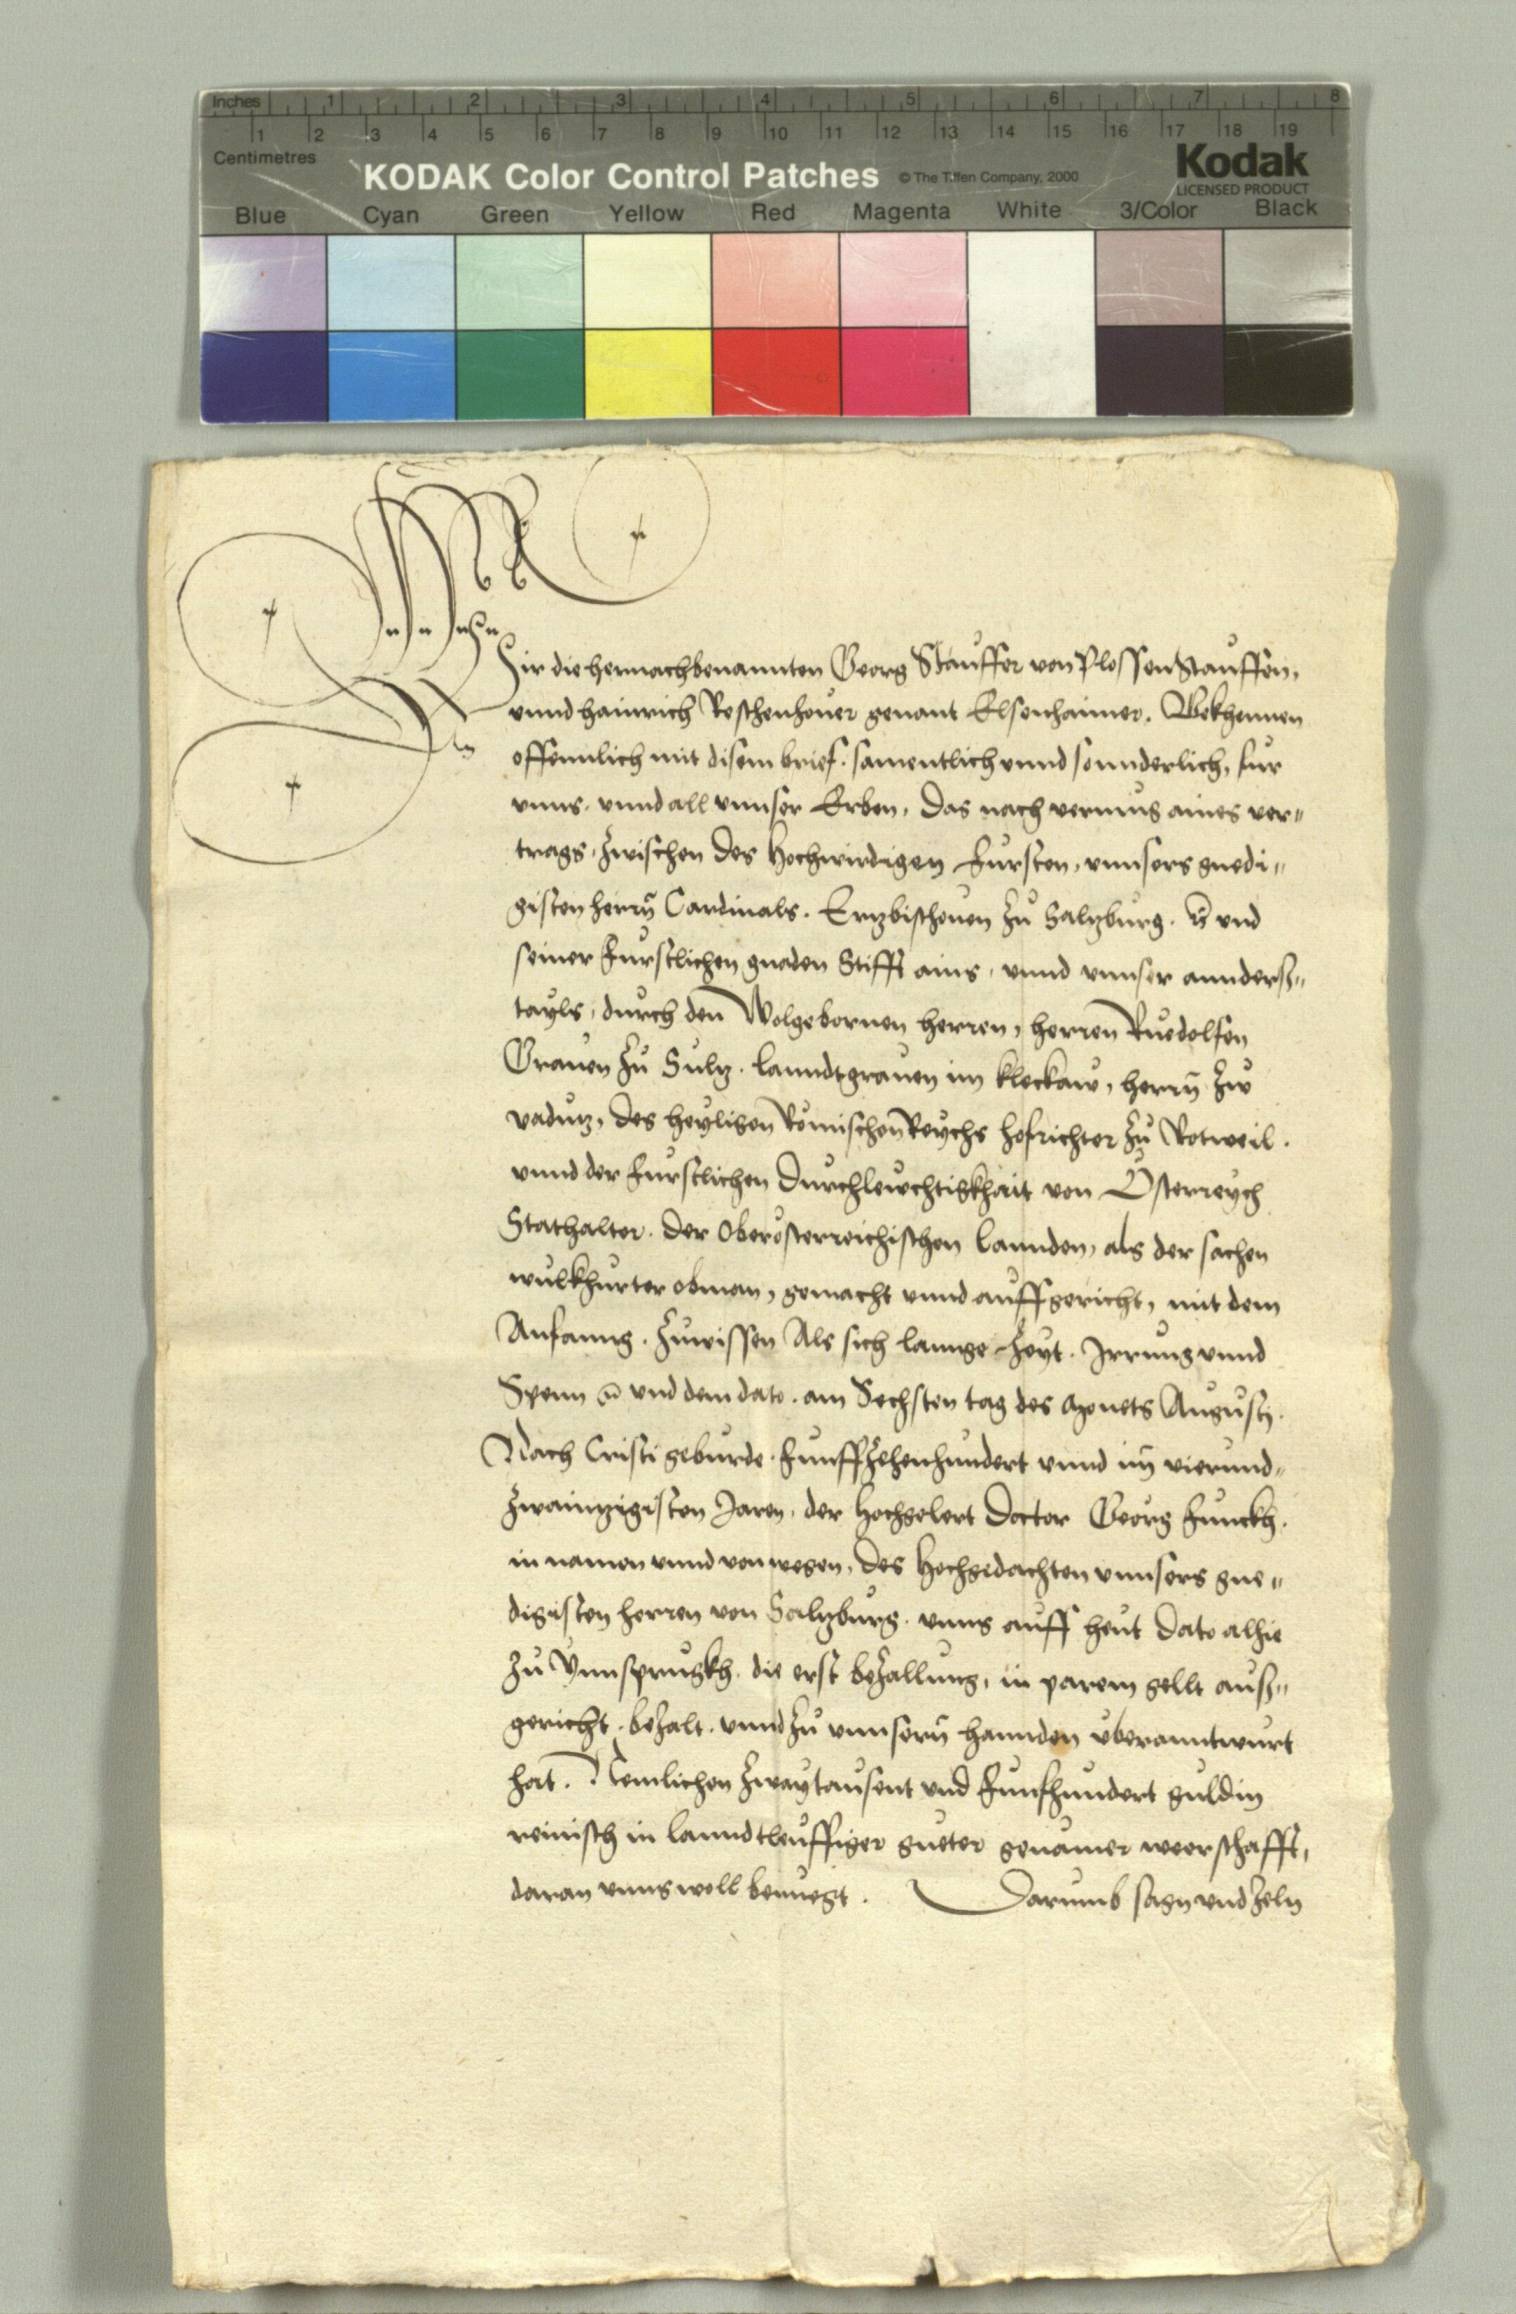 Inches 1 2 3 4 5 6 7 8
1 2 3 4 5 6 7 8 9 10 11 12 13 14 15 16 17 18 19
Centimetres
KODAK Color Control Patches © The Tiffen Company, 2000 Kodak
LICENSED PRODUCT
Blue Cyan Green Yellow Red Magenta White 3/Color Black
Wir die hernachbenannten Georg Stauffer von Plossenstauffen,
vnnd Hainrich Reschenhouer genant Elsenhaimer. Bekhennen
offennlich mit disem brief. samentlich vnnd sonnderlich, fur
vnns. vnnd all vnnser Erben, Das nach vermug aines ver-
trags, Zwischen des Hochwirdigen Fursten, vnnsers gnedi-
gisten herrn Cardinals. Ertzbischouen Zu Saltzburg. vnd
seiner Furstlichen gnaden Stifft ains, vnnd vnnser annders-
tayls, durch den Wolgebornen herren, herren Ruedolfen
Grauen Zu Sultz. Lanndtgrauen im kleckaw, herrn Zw
vadutz, des heyligen Römischen Reychs hofrichter Zu Rotweil.
vnnd der Furstlichen Durchlewchtigkhait von Österreych
Stathalter. der Oberösterreichischen Lannden, als der sachen
wulkhurter obman, gemacht vnnd auffgericht, mit dem
Anfanng. Zuwissen Als sich lannge Zeyt. Irrung vnnd
Spenn vnd dem dato. am Sechsten tag des Monets Augusti.
Nach Cristi geburde. Funffzehenhundert vnnd im vierund-
zwaintzigisten Jaren, der Hochgelert Doctor Georg Funckh.
in namen vnnd von wegen, des Hochgedachten vnnsers gne-
digisten herren von Saltzburg. vnns auff heut Dato alhie
Zu Ynnsprugkh. die erst bezallung, in parem gellt aus-
gericht. bezalt. vnnd Zu vnnsern hannden überanntwurt
hat. Nemlichen Zwaytausent vnd Funfhundert guldin
reinisch in lanndtleuffiger gueter genämer weerschafft,
daran vnns woll benuegt. Darumb sagn vnd Zeln